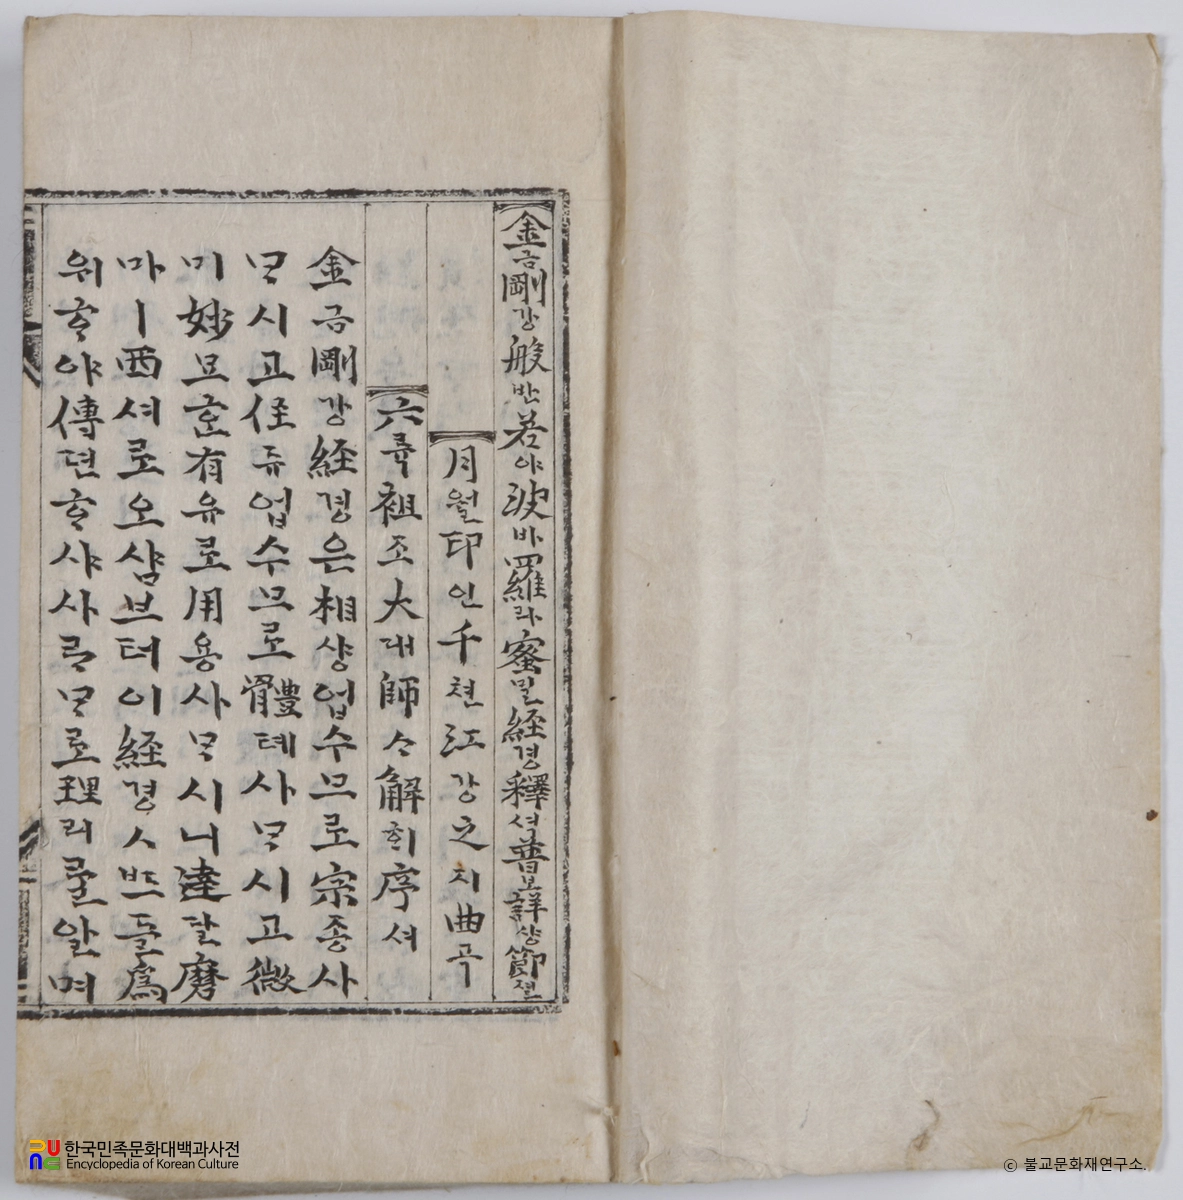 金금剛강般반若야波바羅라蜜밀經경釋석普보詳샹節졀
月월印인千쳔江강之지曲곡
六륙祖조大대師ᄉᆞ解ᄒᆡ序셔
金금剛강経경은相샹업수므로宗종사
ᄆᆞᆯ시고住듀업수므로體톄사ᄆᆞ시고微
미妙묘호有유로用용사ᄆᆞ시니達달磨
마ㅣ西셔로오샴브터이経경ㅅᄠᅳ들為
위ᄒᆞ야傳뎐ᄒᆞ샤사ᄅᆞᄆᆞ로理리ᄅᆞᆯ알며
한국민족문화대백과사전
Encyclopedia of Korean Culture
ⓒ 불교문화재연구소.